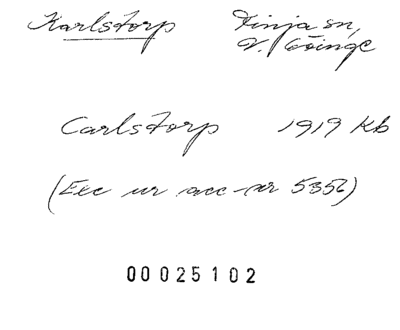 Karlstorp Finja sn,
V. Göinge
Carlstorp 1919 Kb
(Exc ur acc-nr 5356)
00025102